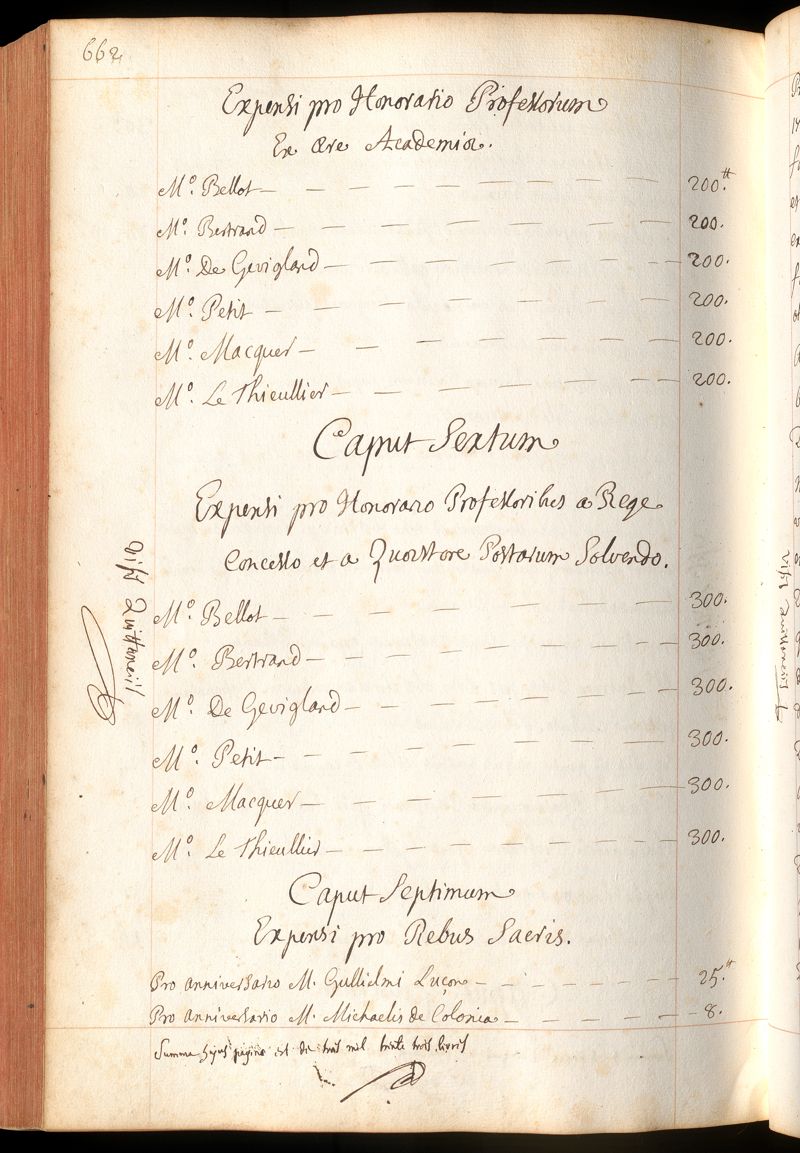 662
Expensi pro Honorario Professorum
Ex ære Academiæ.
M.º Bellot — 200.tt
M.º Bertrand — 200.
M.º De Gevigland — 200.
M.º Petit — 200.
M.º Macquer — 200.
M.º Le Thieullier — 200.
Caput Sextum
Expensi pro Honorario Professoribus a Rege
Concesso et a Quæstore Postarum Solvendo.
M.º Bellot — 300.
M.º Bertrand — 300.
M.º De Gevigland — 300.
M.º Petit — 300.
M.º Macquer — 300.
M.º Le Thieullier — 300.
Visis Quittanciis
Caput Septimum
Expensi pro Rebus Sacris.
Pro anniversario M. Gullielmi Luçon — 25.tt
Pro anniversario M. Michaelis de Colonia — 8.
Summa hujus paginæ est de trois mil trente trois livres
Visis Quittanciis